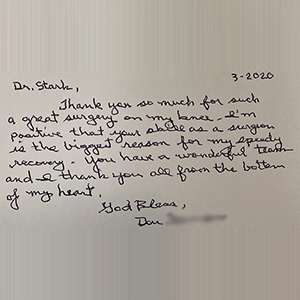 3-2020
Dr. Stark,
Thank you so much for such
a great surgery on my knee. I'm
positive that your skills as a surgeon
is the biggest reason for my speedy
recovery. You have a wonderful team
and I thank you all from the bottom
of my heart.
God Bless,
Don